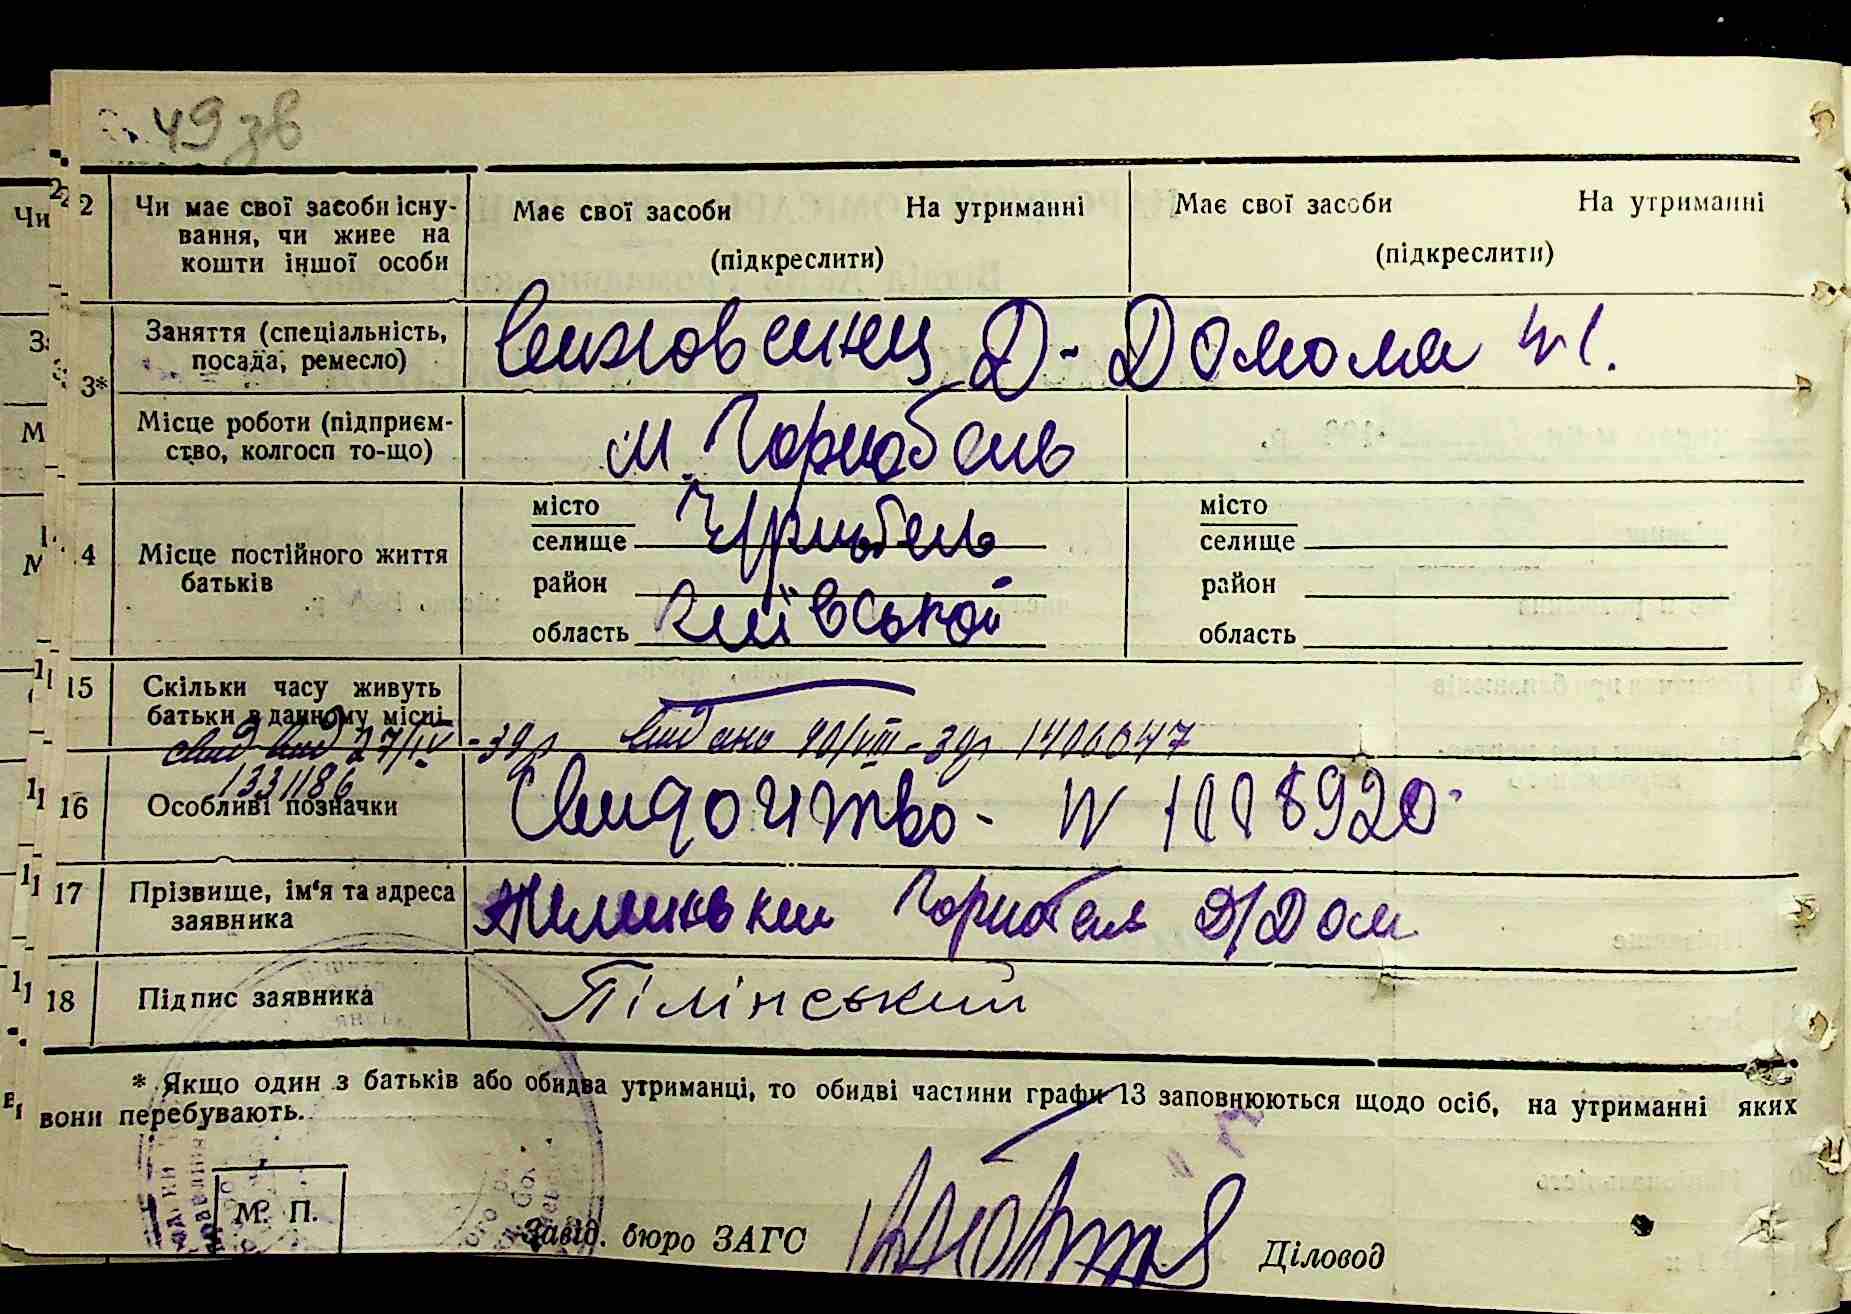 49 зв
2 Чи має свої засоби існу-
вання, чи живе на
кошти іншої особи
Має свої засоби На утриманні
(підкреслити)
Має свої засоби На утриманні
(підкреслити)
3* Заняття (спеціальність,
посада, ремесло)
Вихованец Д-Домома №1.
Місце роботи (підприєм-
ство, колгосп то-що)
м. Чорнобель
4 Місце постійного життя
батьків
місто
селище Чорнобель
район
область Київської
місто
селище
район
область
15 Скільки часу живуть
батьки в данному місці
свид вид 27/IV-39р видано 10/VIII-39р 1406047
1331186
16 Особливі позначки
Свидочтво- N 1118920
17 Прізвище, ім'я та адреса
заявника
Чорнобел Д/Дом
18 Підпис заявника
Пілінський
* Якщо один з батьків або обидва утриманці, то обидві частини графи 13 заповнюються щодо осіб, на утриманні яких
вони перебувають.
М. П.
Завід. бюро ЗАГС
Діловод